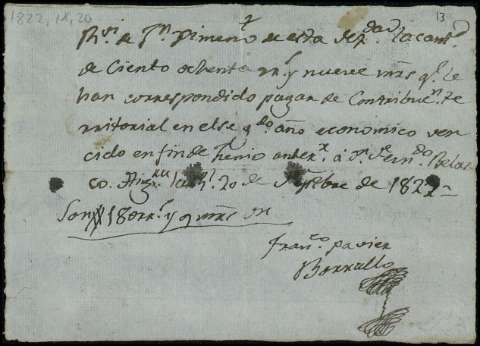 1822, IX, 20
13
de Jn. Ximeno de esta la cant.d
de Ciento ochenta rr.s y nueve mrs q.e le
han correspondido pagar de Contribuc.n te
rritorial en el seg.do año economico ven
cido en fin de Junio anter.r á Dn. Fern.do Velas
co. 20 de Sepbre de 1822
Son 180 rr.s y 9 mrs vn
Fran.co Xavier
Borrullo